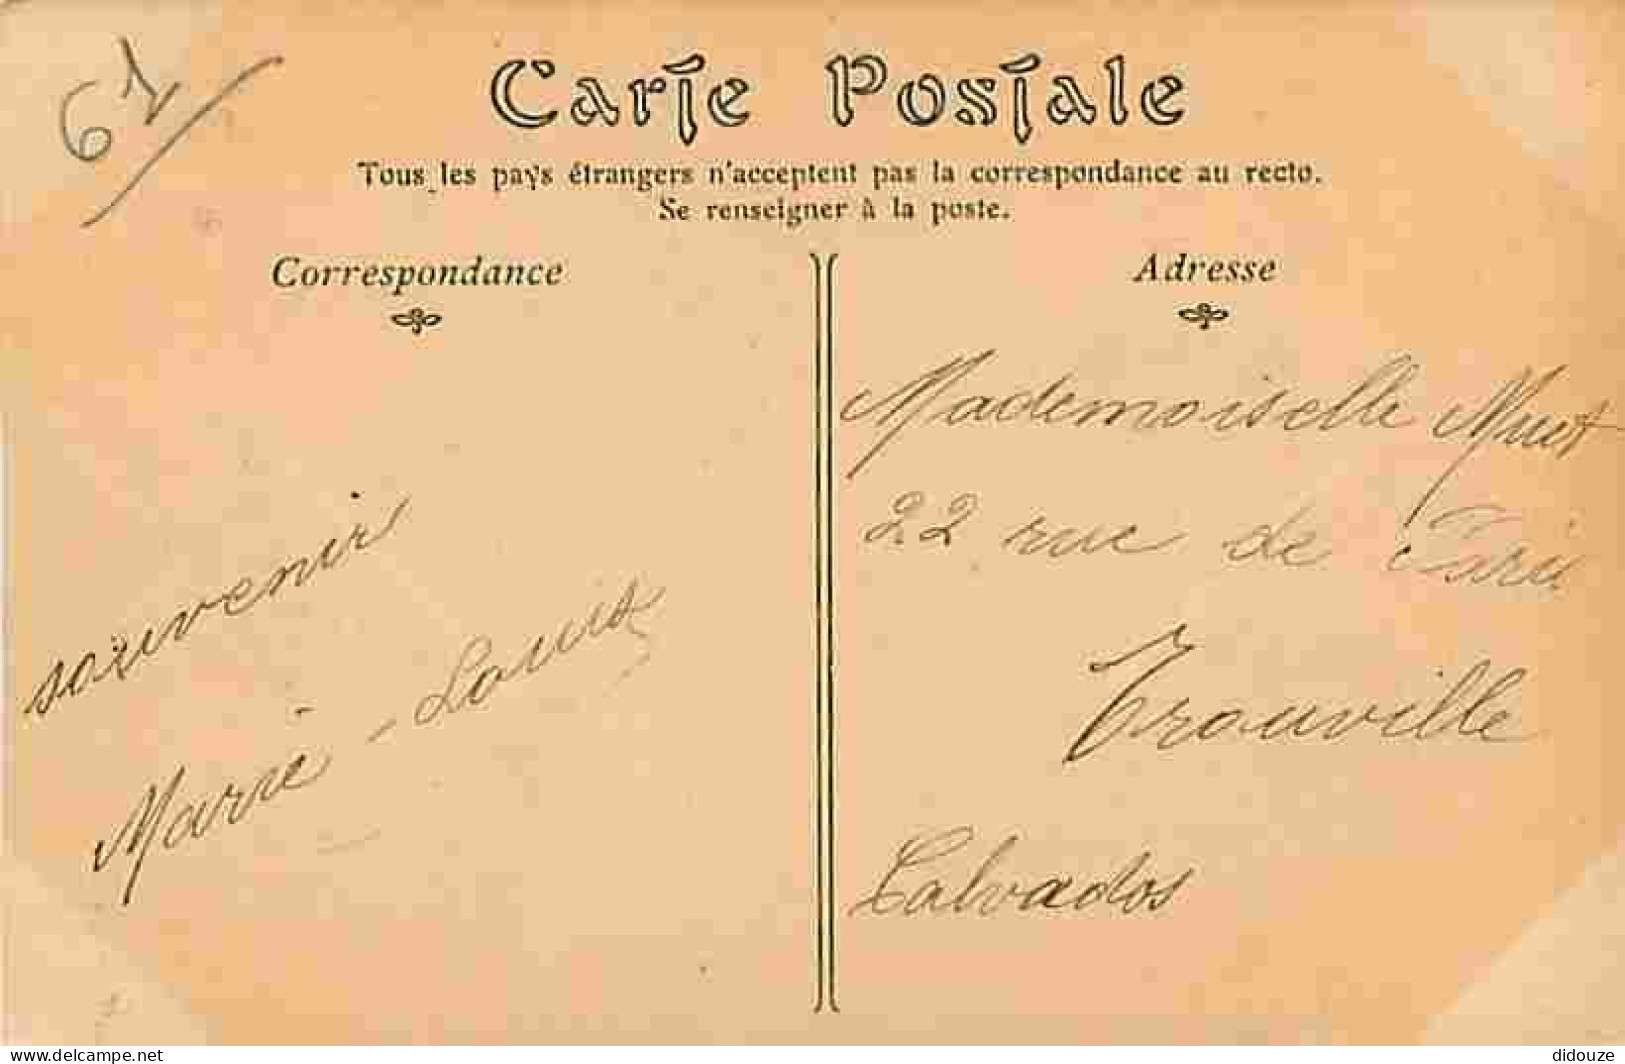 Carte Postale
Tous les pays étrangers n'acceptent pas la correspondance au recto.
Se renseigner à la poste.
Correspondance
souvenir
Marie-Louise
Adresse
Mademoiselle
22 rue de Paris
Trouville
Calvados
delcampe.net
didouze